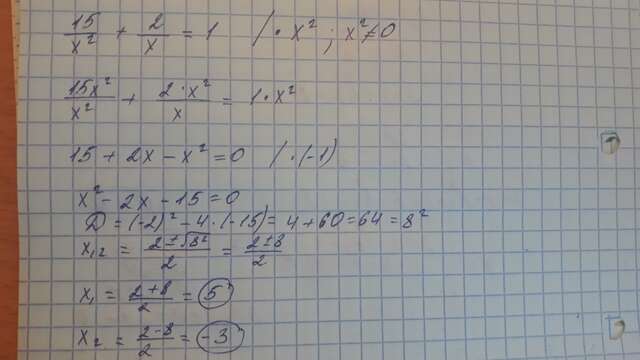 15/x² + 2/x = 1 / · x² ; x² ≠ 0
15x²/x² + 2·x²/x = 1·x²
15 + 2x - x² = 0 / · (-1)
x² - 2x - 15 = 0
D = (-2)² - 4·(-15) = 4 + 60 = 64 = 8²
x₁₂ = 2±√8²/2 = 2±8/2
x₁ = 2+8/2 = 5
x₂ = 2-8/2 = -3